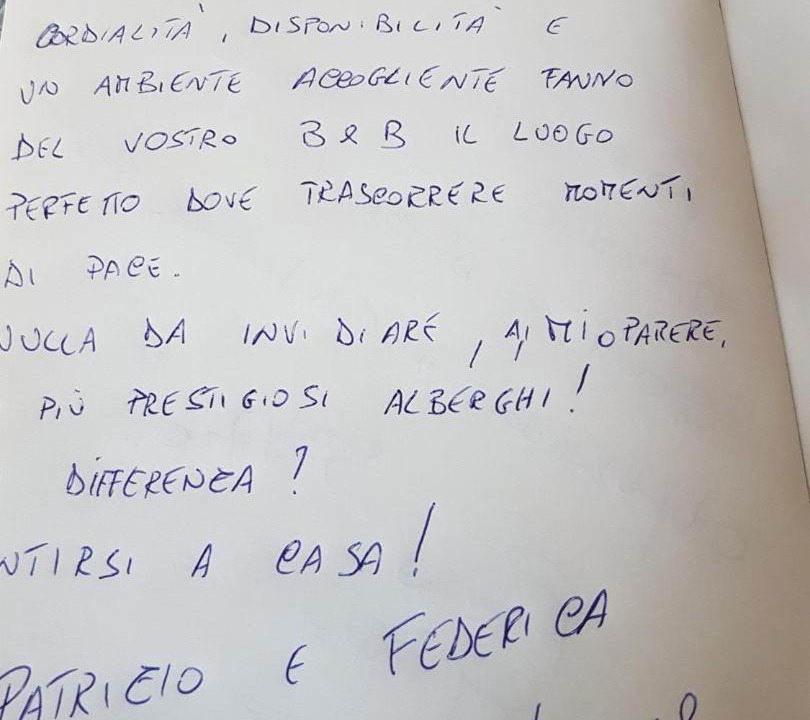 CORDIALITÀ, DISPONIBILITÀ E
UN AMBIENTE ACCOGLIENTE FANNO
DEL VOSTRO B & B IL LUOGO
PERFETTO DOVE TRASCORRERE MOMENTI
DI PACE.
NULLA DA INVIDIARE, AI, MIO PARERE,
PIÙ PRESTIGIOSI ALBERGHI!
DIFFERENZA?
NTIRSI A CASA!
PATRIZIO E FEDERICA